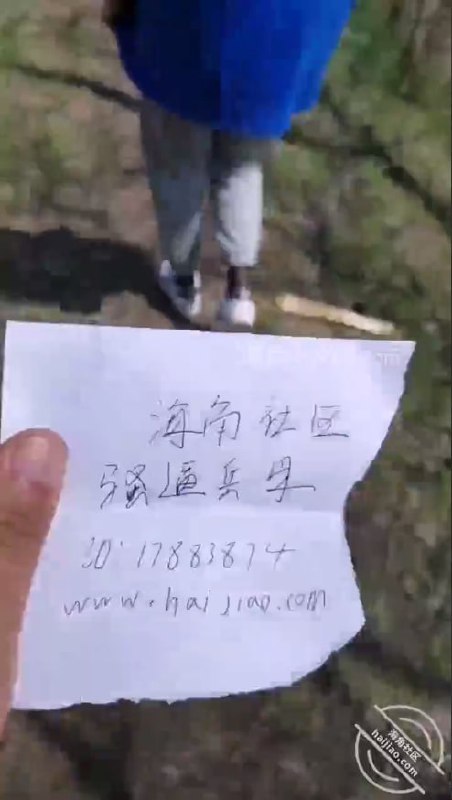 海角社区
骚逼兵母
ID: 17883874
www.haijiao.com
海角社区
haijiao.com